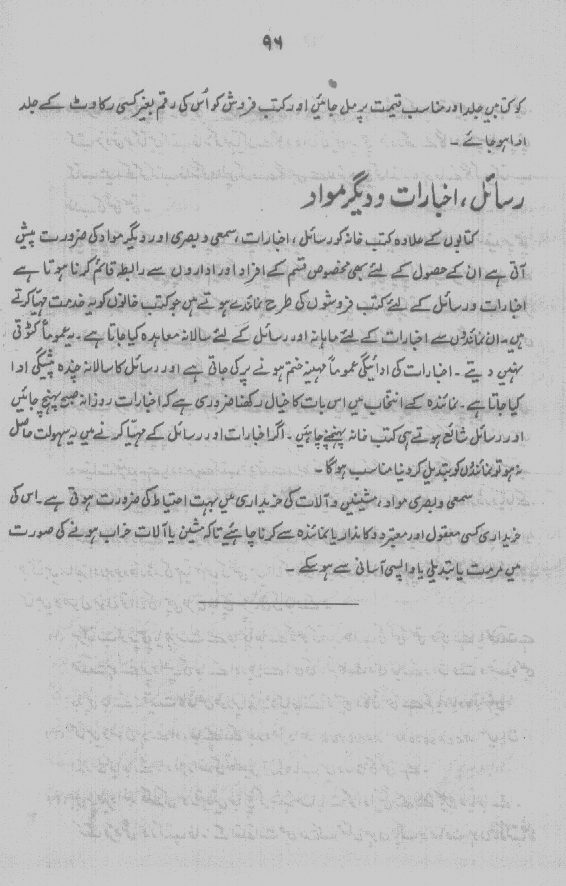 ۹۶
کو کتابیں جلد اور مناسب قیمت پر مل جائیں اور کتب فروش کو اُس کی رقم بغیر کسی رکاوٹ کے جلد
ادا ہو جائے ۔
رسائل، اخبارات و دیگر مواد
کتابوں کے علاوہ کتب خانہ کو رسائل، اخبارات، سمعی و بصری اور دیگر مواد کی ضرورت پیش
آتی ہے ان کے حصول کے لئے بھی مخصوص قسم کے افراد اور اداروں سے رابطہ قائم کرنا ہوتا ہے
اخبارات و رسائل کے لئے کتب فروشوں کی طرح نمائندے ہوتے ہیں جو کتب خانوں کو یہ خدمت مہیا کرتے
ہیں۔ ان نمائندوں سے اخبارات کے لئے ماہانہ اور رسائل کے لئے سالانہ معاہدہ کیا جاتا ہے۔ یہ عموماً کٹوتی
نہیں دیتے ۔ اخبارات کی ادائیگی عموماً مہینہ ختم ہونے پر کی جاتی ہے اور رسائل کا سالانہ چندہ پیشگی ادا
کیا جاتا ہے۔ نمائندہ کے انتخاب میں اس بات کا خیال رکھنا ضروری ہے کہ اخبارات روزانہ صبح پہنچ جائیں
اور رسائل شائع ہوتے ہی کتب خانہ پہنچنے چاہئیں ۔ اگر اخبارات اور رسائل کے مہیا کرنے میں یہ سہولت حاصل
نہ ہو تو نمائندوں کو تبدیل کر دینا مناسب ہو گا ۔
سمعی و بصری مواد، مشینیں و آلات کی خریداری میں بہت احتیاط کی ضرورت ہوتی ہے۔ اس کی
خریداری کسی معقول اور معتبر دوکاندار یا نمائندہ سے کرنا چاہئے تاکہ مشین یا آلات خراب ہونے کی صورت
میں مرمت یا تبدیلی یا واپسی آسانی سے ہو سکے ۔